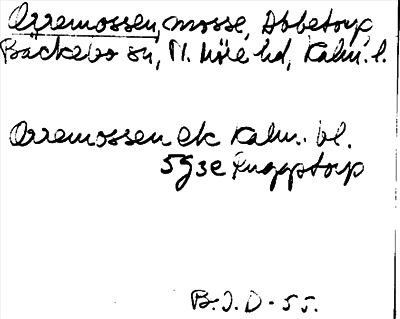 Orremossen, mosse, Abbetorp,
Bäckebo sn, N. Möre hd, Kalm. l.
Orremossen ek Kalm. bl.
5g se Ruggstorp
B.J.D - 55.